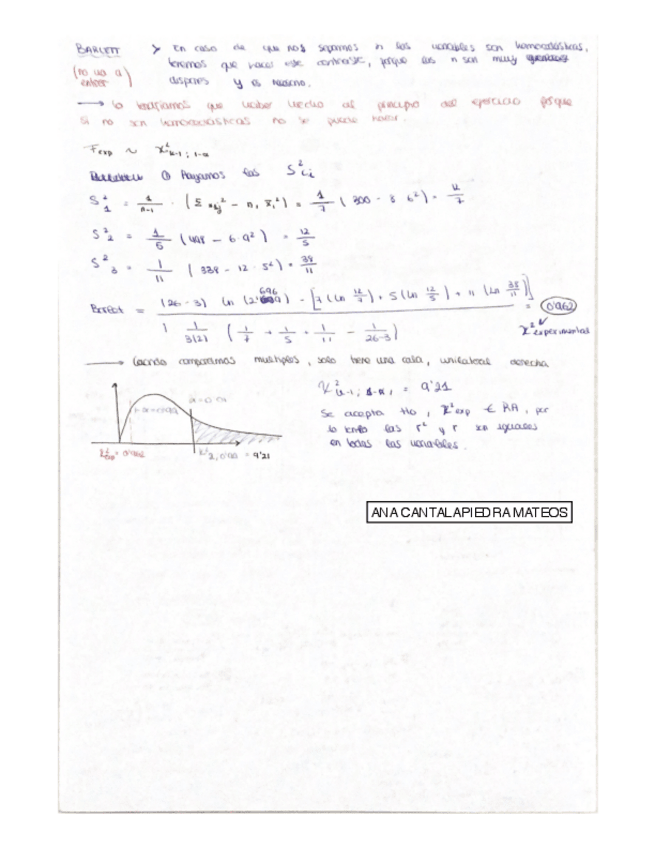 BARLETT > En caso de que nos sepamos si las variables son homocedásticas,
(no va a tenemos que hacer este contraste, porque las n son muy
entrar) dispares y es necesario.
→ Lo tendríamos que haber hecho al principio del ejercicio porque
si no son homocedásticas no se puede hacer.
Fexp ~ χ²k-1; 1-α
① Hayamos las S²ci
S²1 = 1/n-1 · (Σ xij² - n, x̄i²) = 1/7 (300 - 8·6²) = 12/7
S²2 = 1/5 (498 - 6·9²) = 12/5
S²3 = 1/11 (338 - 12·5²) = 38/11
Barlett = (26-3) ln (2'696) - [7 (ln 12/7) + 5 (ln 12/5) + 11 (ln 38/11)] = 0'962
1 1/3(2) (1/7 + 1/5 + 1/11 - 1/26-3)
χ² experimental
→ Cuando comparamos múltiples, solo tiene una cola, unilateral derecha
χ²k-1; 1-α, = 9'21
α = 0'01
1-α=0'99
Se acepta Ho, χ²exp ∈ RA, por
lo tanto las σ² y σ son iguales
en todas las variables.
χ²exp = 0'962
χ²2, 0'99 = 9'21
ANA CANTALAPIEDRA MATEOS